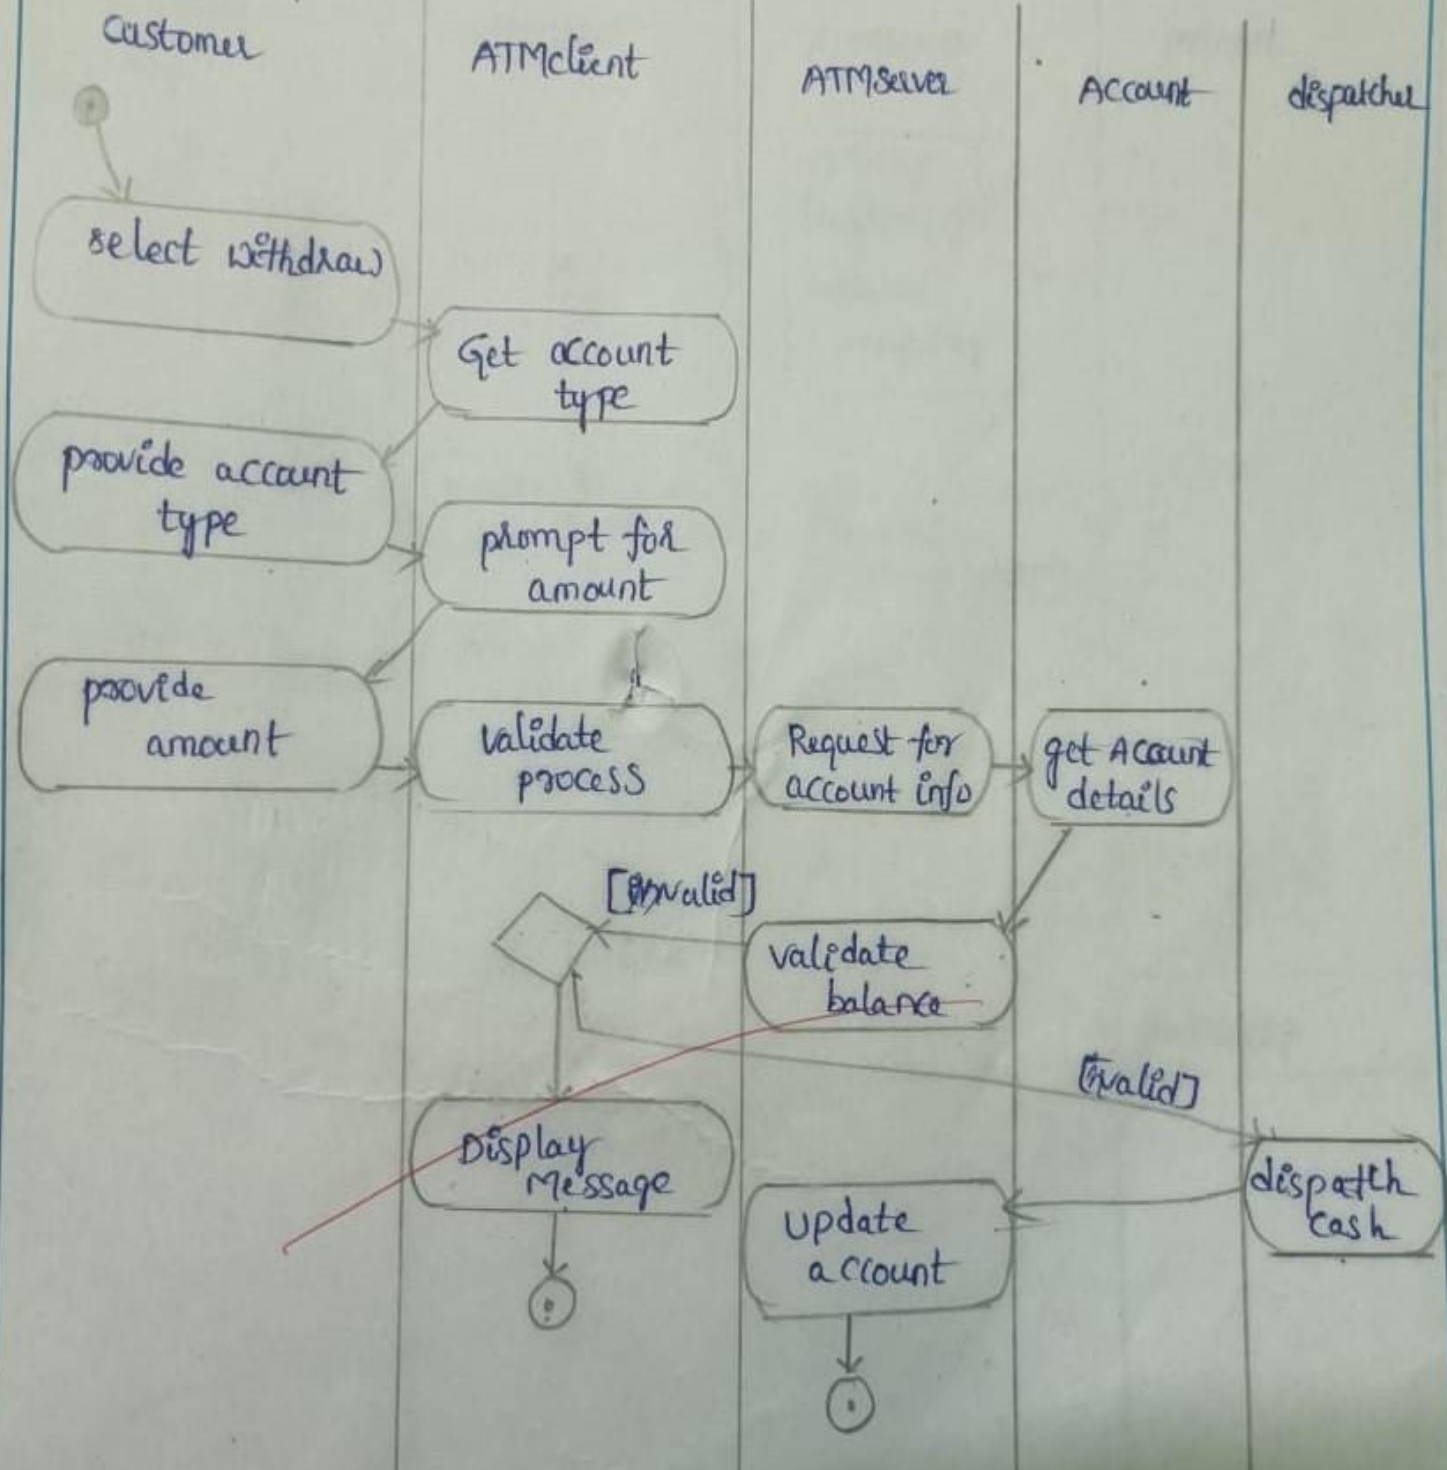 Customer
ATMclient
ATMServer
Account
dispatcher
select withdraw
Get account
type
provide account
type
prompt for
amount
provide
amount
validate
process
Request for
account info
get Account
details
[invalid]
validate
balance
[valid]
Display
Message
dispatch
cash
update
account